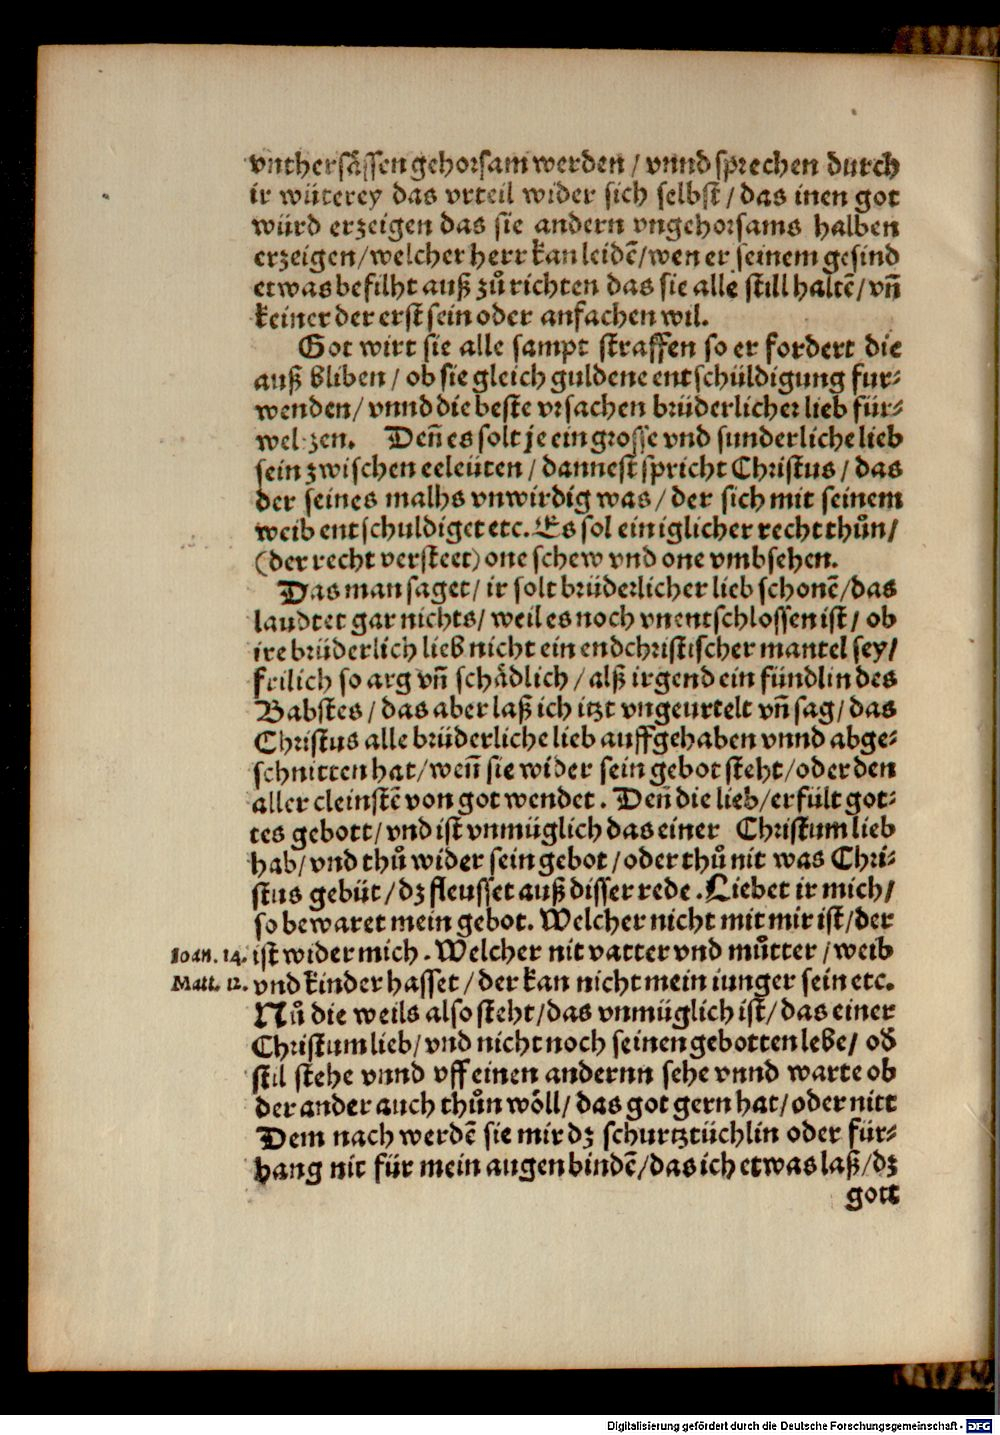 vnthersåssen gehorsam werden / vnnd sprechen durch
ir wüterey das vrteil wider sich selbst / das inen got
würd erzeigen das sie andern vngehorsams halben
erzeigen / welcher herr kan leidē / wen er seinem gesind
etwas befilht auß zů richten das sie alle still haltē / vn̄
keiner der erst sein oder anfachen wil.
Got wirt sie alle sampt straffen so er fordert die
auß bliben / ob sie gleich guldene entschüldigung fur-
wenden / vnnd die beste vrsachen brüderlicher lieb für-
welzen. Den̄ es solt je ein grosse vnd sunderliche lieb
sein zwischen eeleüten / dannest spricht Christus / das
der seines malhs vnwirdig was / der sich mit seinem
weib entschuldiget etc. Es sol ein iglicher recht thůn /
(der recht versteet) one schew vnd one vmbsehen.
Das man saget / ir solt brüderlicher lieb schonē / das
laudtet gar nichts / weil es noch vnentschlossen ist / ob
ire brüderlich lieb nicht ein endchristischer mantel sey /
freilich so arg vn̄ schådlich / alß irgend ein fündlin des
Babstes / das aber laß ich itzt vngeurtelt vn̄ sag / das
Christus alle brüderliche lieb auffgehaben vnnd abge-
schnitten hat / wen̄ sie wider sein gebot steht / oder den
aller cleinstē von got wendet. Den̄ die lieb / erfült got-
tes gebott / vnd ist vnmüglich das einer Christum lieb
hab / vnd thů wider sein gebot / oder thů nit was Chri-
stus gebüt / dz fleusset auß disser rede. Liebet ir mich /
so bewaret mein gebot. Welcher nicht mit mir ist / der
Ioan. 14. ist wider mich. Welcher nit vatter vnd můtter / weib
Matt. 12. vnd kinder hasset / der kan nicht mein iunger sein etc.
Nů die weils also steht / das vnmüglich ist / das einer
Christum lieb / vnd nicht noch seinen gebotten lebe / od̄
stil stehe vnnd vff einen andernn sehe vnnd warte ob
der ander auch thůn wöll / das got gern hat / oder nitt
Dem nach werdē sie mir dz schurtztüchlin oder für-
hang nit für mein augen bindē / das ich etwas laß / dz
gott
Digitalisierung gefördert durch die Deutsche Forschungsgemeinschaft - DFG